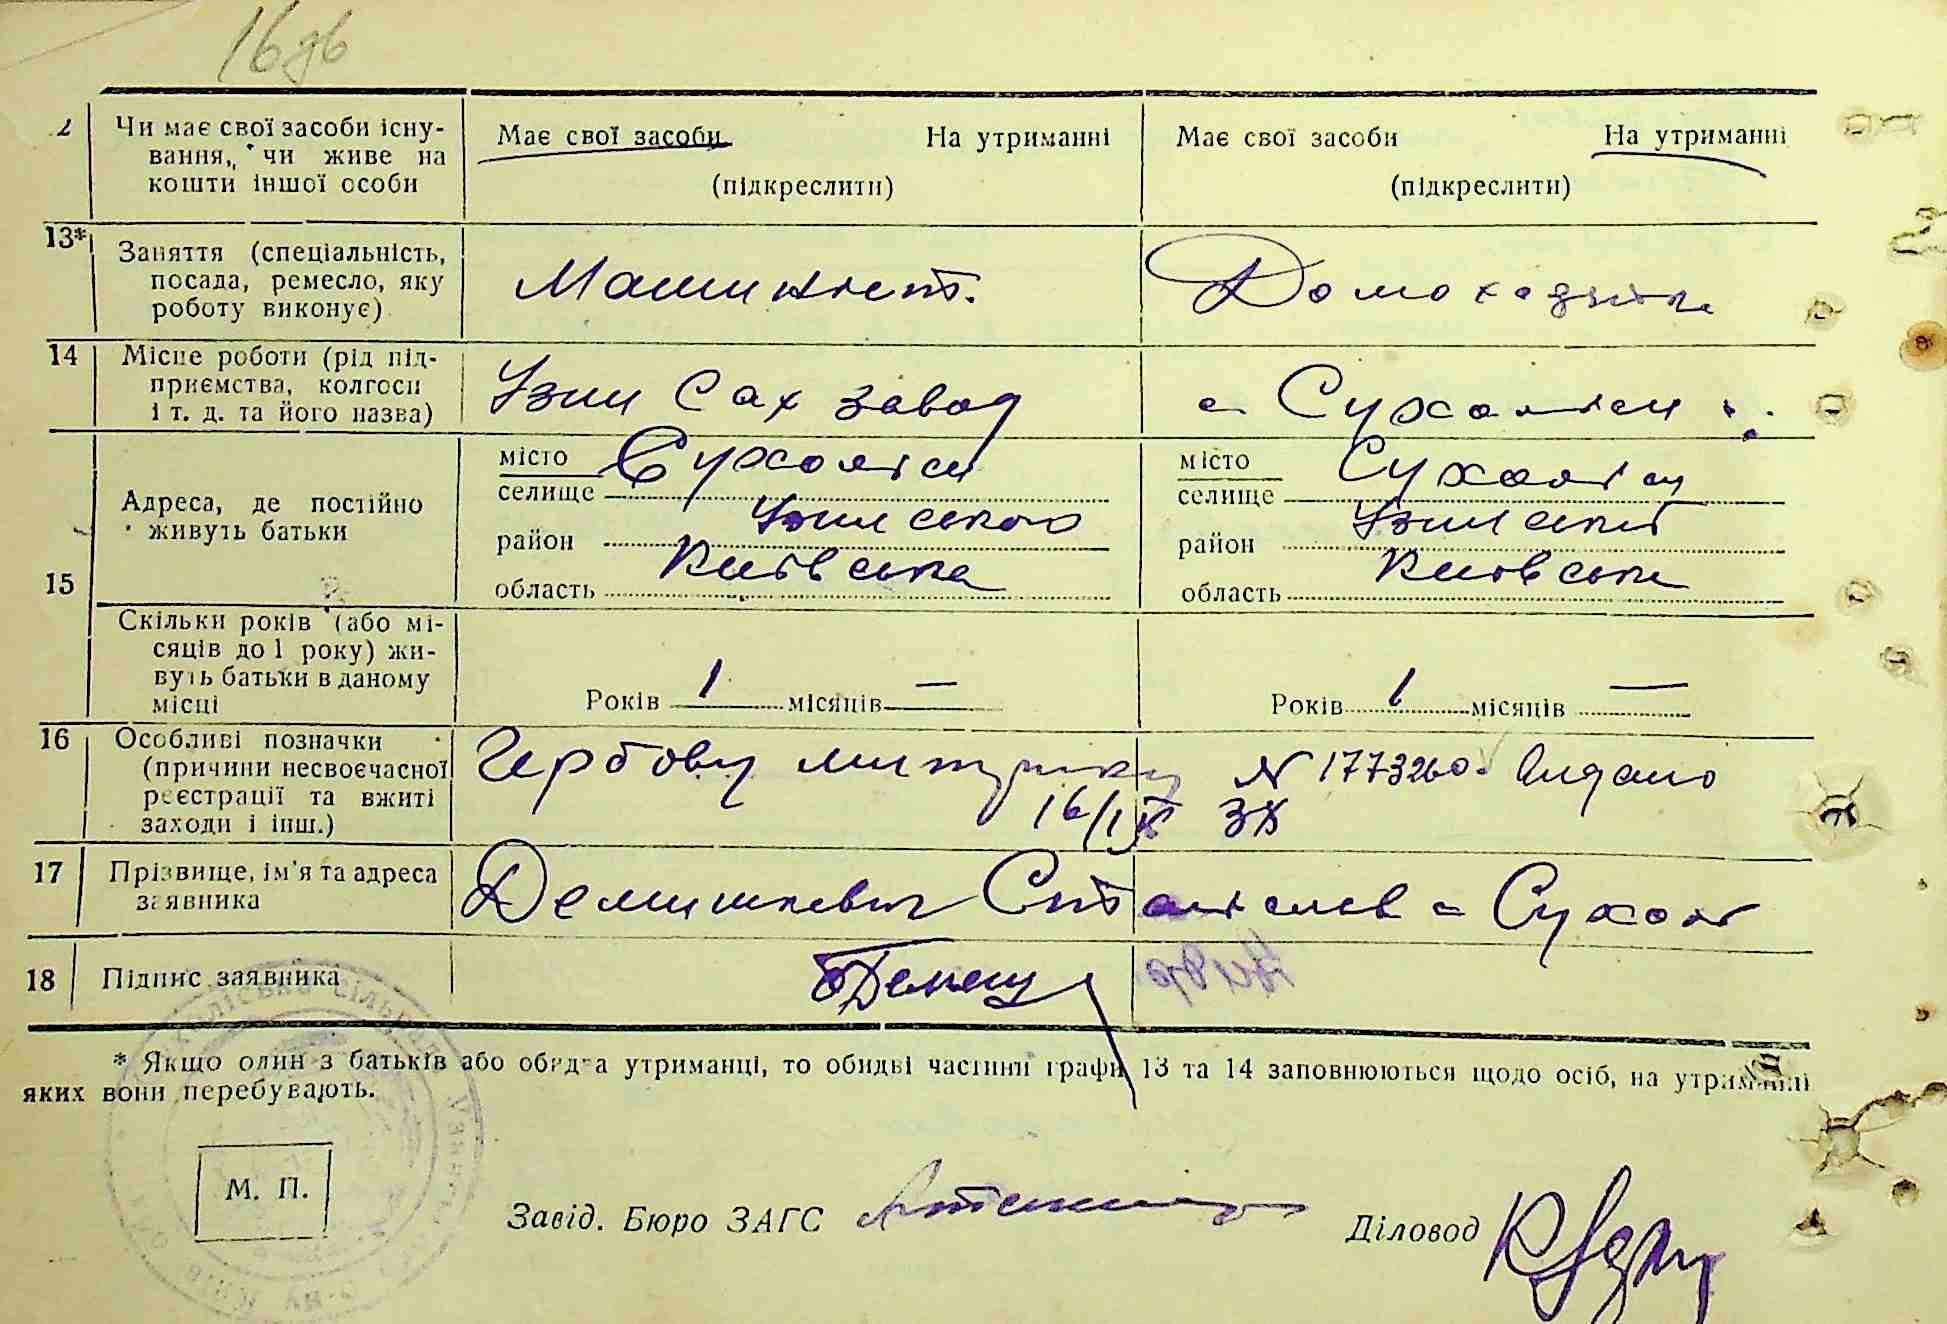 16 зв
2 Чи має свої засоби існу- Має свої засоби На утриманні Має свої засоби На утриманні
вання, чи живе на
кошти іншої особи (підкреслити) (підкреслити)
13* Заняття (спеціальність,
посада, ремесло, яку Машиніст. Домохазяйка
роботу виконує)
14 Місце роботи (рід під-
приємства, колгосп Узин Сах завод с Сухоліси
і т. д. та його назва)
місто Сухоліси місто Сухоліси
Адреса, де постійно селище селище
живуть батьки район Узинського район Узинський
15 область Київська область Київська
Скільки років (або мі-
сяців до 1 року) жи-
вуть батьки в даному Років 1 місяців — Років 1 місяців —
місці
16 Особливі позначки Гербову митричку N 177326о. Видано
(причини несвоєчасної
реєстрації та вжиті 16/IX 38
заходи і інш.)
17 Прізвище, ім'я та адреса Демишкевич Станіслав с Сухол
заявника
18 Підпис заявника
* Якщо один з батьків або обидва утриманці, то обидві частини графи 13 та 14 заповнюються щодо осіб, на утриманні
яких вони перебувають.
М. П.
Завід. Бюро ЗАГС Діловод